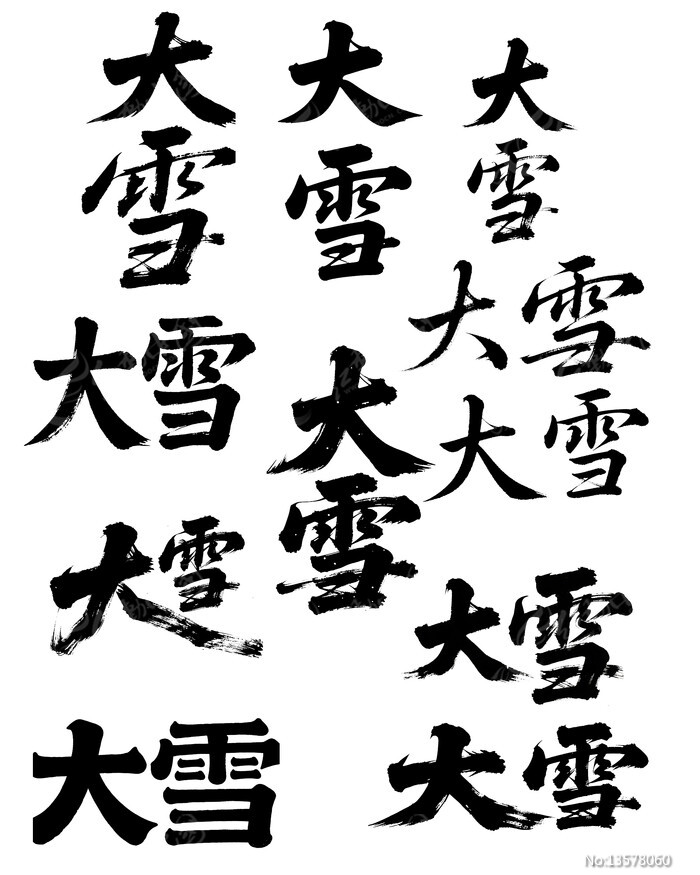 大雪
大雪
大雪
大雪
大雪
大雪
大雪
大雪
大雪
大雪
大雪
No:13578060